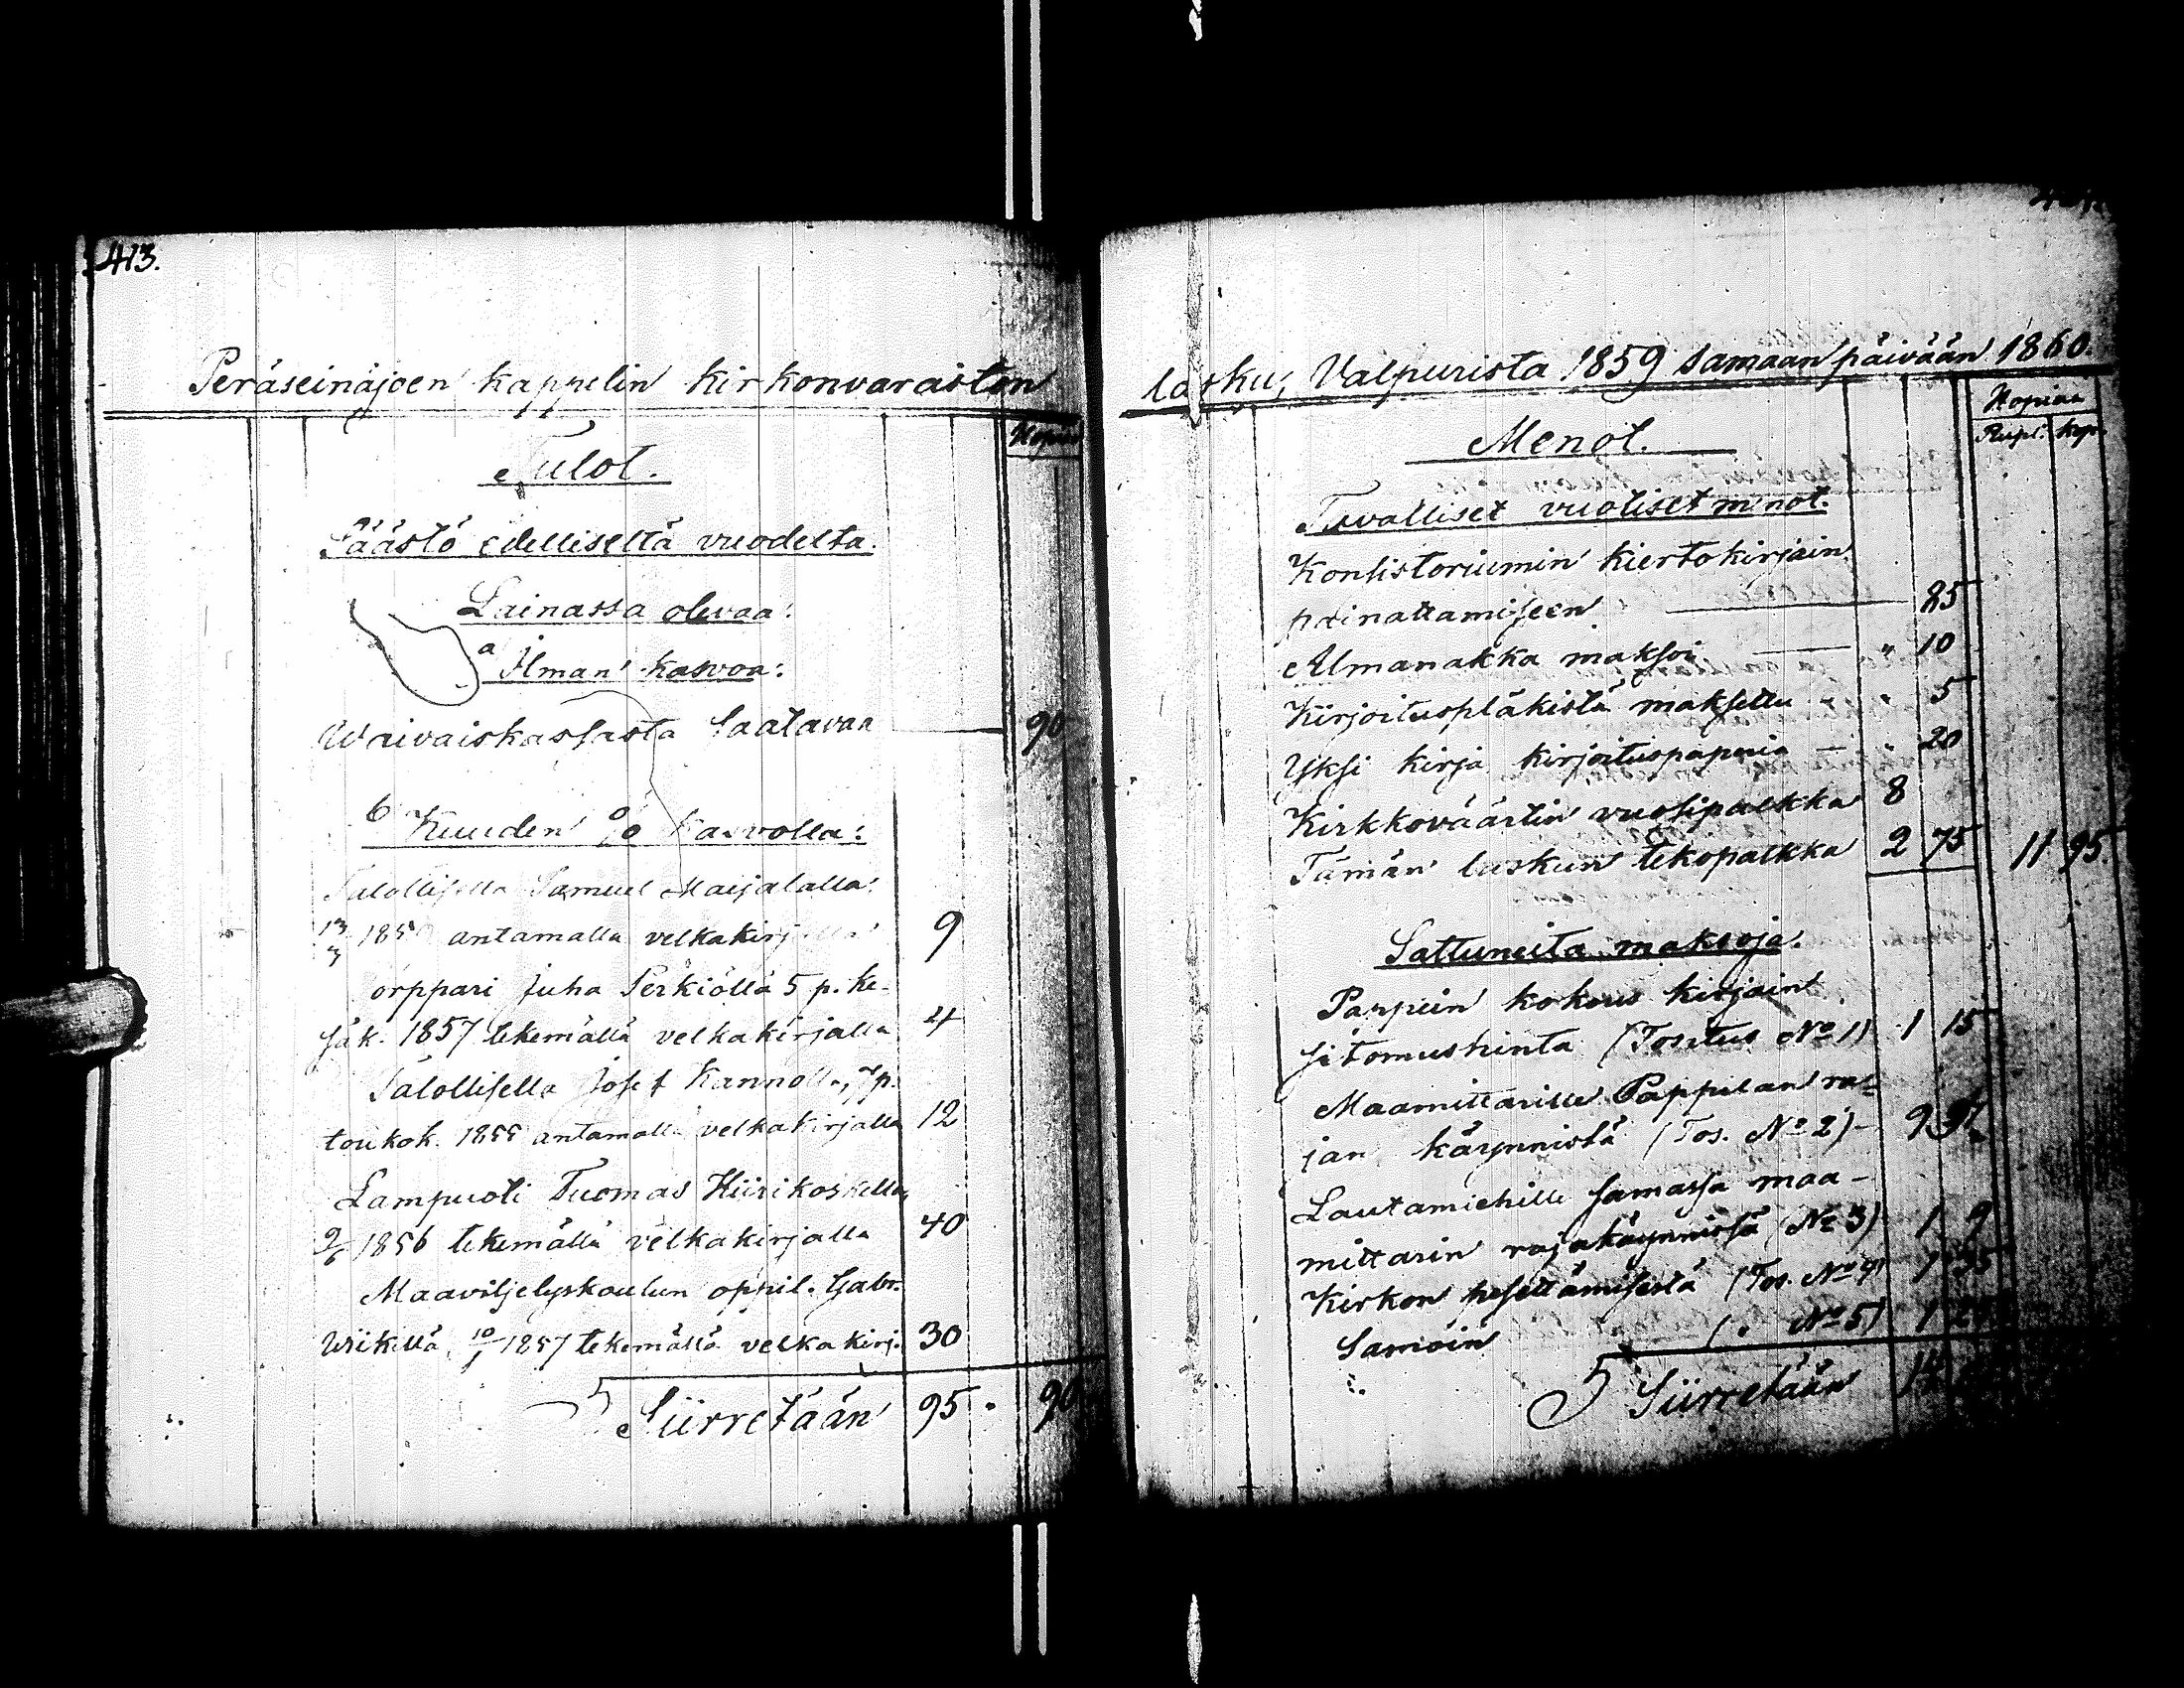 413.
Peräseinäjoen kappelin kirkonvaraston
Hopia
Tulot.
Säästö edelliseltä vuodelta.
Lainassa olevaa:
a Ilman kasvoa:
Waivaiskassasta saatavaa 90
b Kuuden % kasvolla:
Talollisella Samuel Maijalalla:
antamalla 9
orppari Juha Perkiöllä 5 p. ke-
säk. 1857 tekemällä velkakirjalla 4
Talollisella Josef Kannolla, 7 p.
toukok. 1855 antamalla velkakirjalla 12
Lampuoti Tuomas Kiirikoskella
1856 tekemällä velkakirjalla 40
Maaviljelyskoulun oppil. Gabr.
Wiikillä, 10/1 1857 tekemällä velkakirj. 30
Siirretään 95 . 90
lasku, Valpurista 1859 samaan päivään 1860.
Hopiaa
Rupl. kop.
Menot.
Tavalliset vuotiset menot.
Konsistoriumin kiertokirjain
painattamiseen 85
Almanakka maksoi " 10
Kirjoituspläkistä maksettu " 5
Yksi kirja kirjoituspaperia " 20
Kirkkoväärtin vuosipalkka 8
Tämän laskun tekopalkka 2 75 11 95.
Sattuneita maksoja.
Pappein kokous kirjain
sitomushinta (Tositus No 1) 1 15
Maamittarille Pappilan ra-
jan käynnistä (Tos. No 2) - 9
Lautamiehille samassa maa-
mittarin rajakäynnissä (No 3) 1 9
Kirkon pesettämisestä (Tos. No 4)
Samoin (" No 5) 1
Siirretään